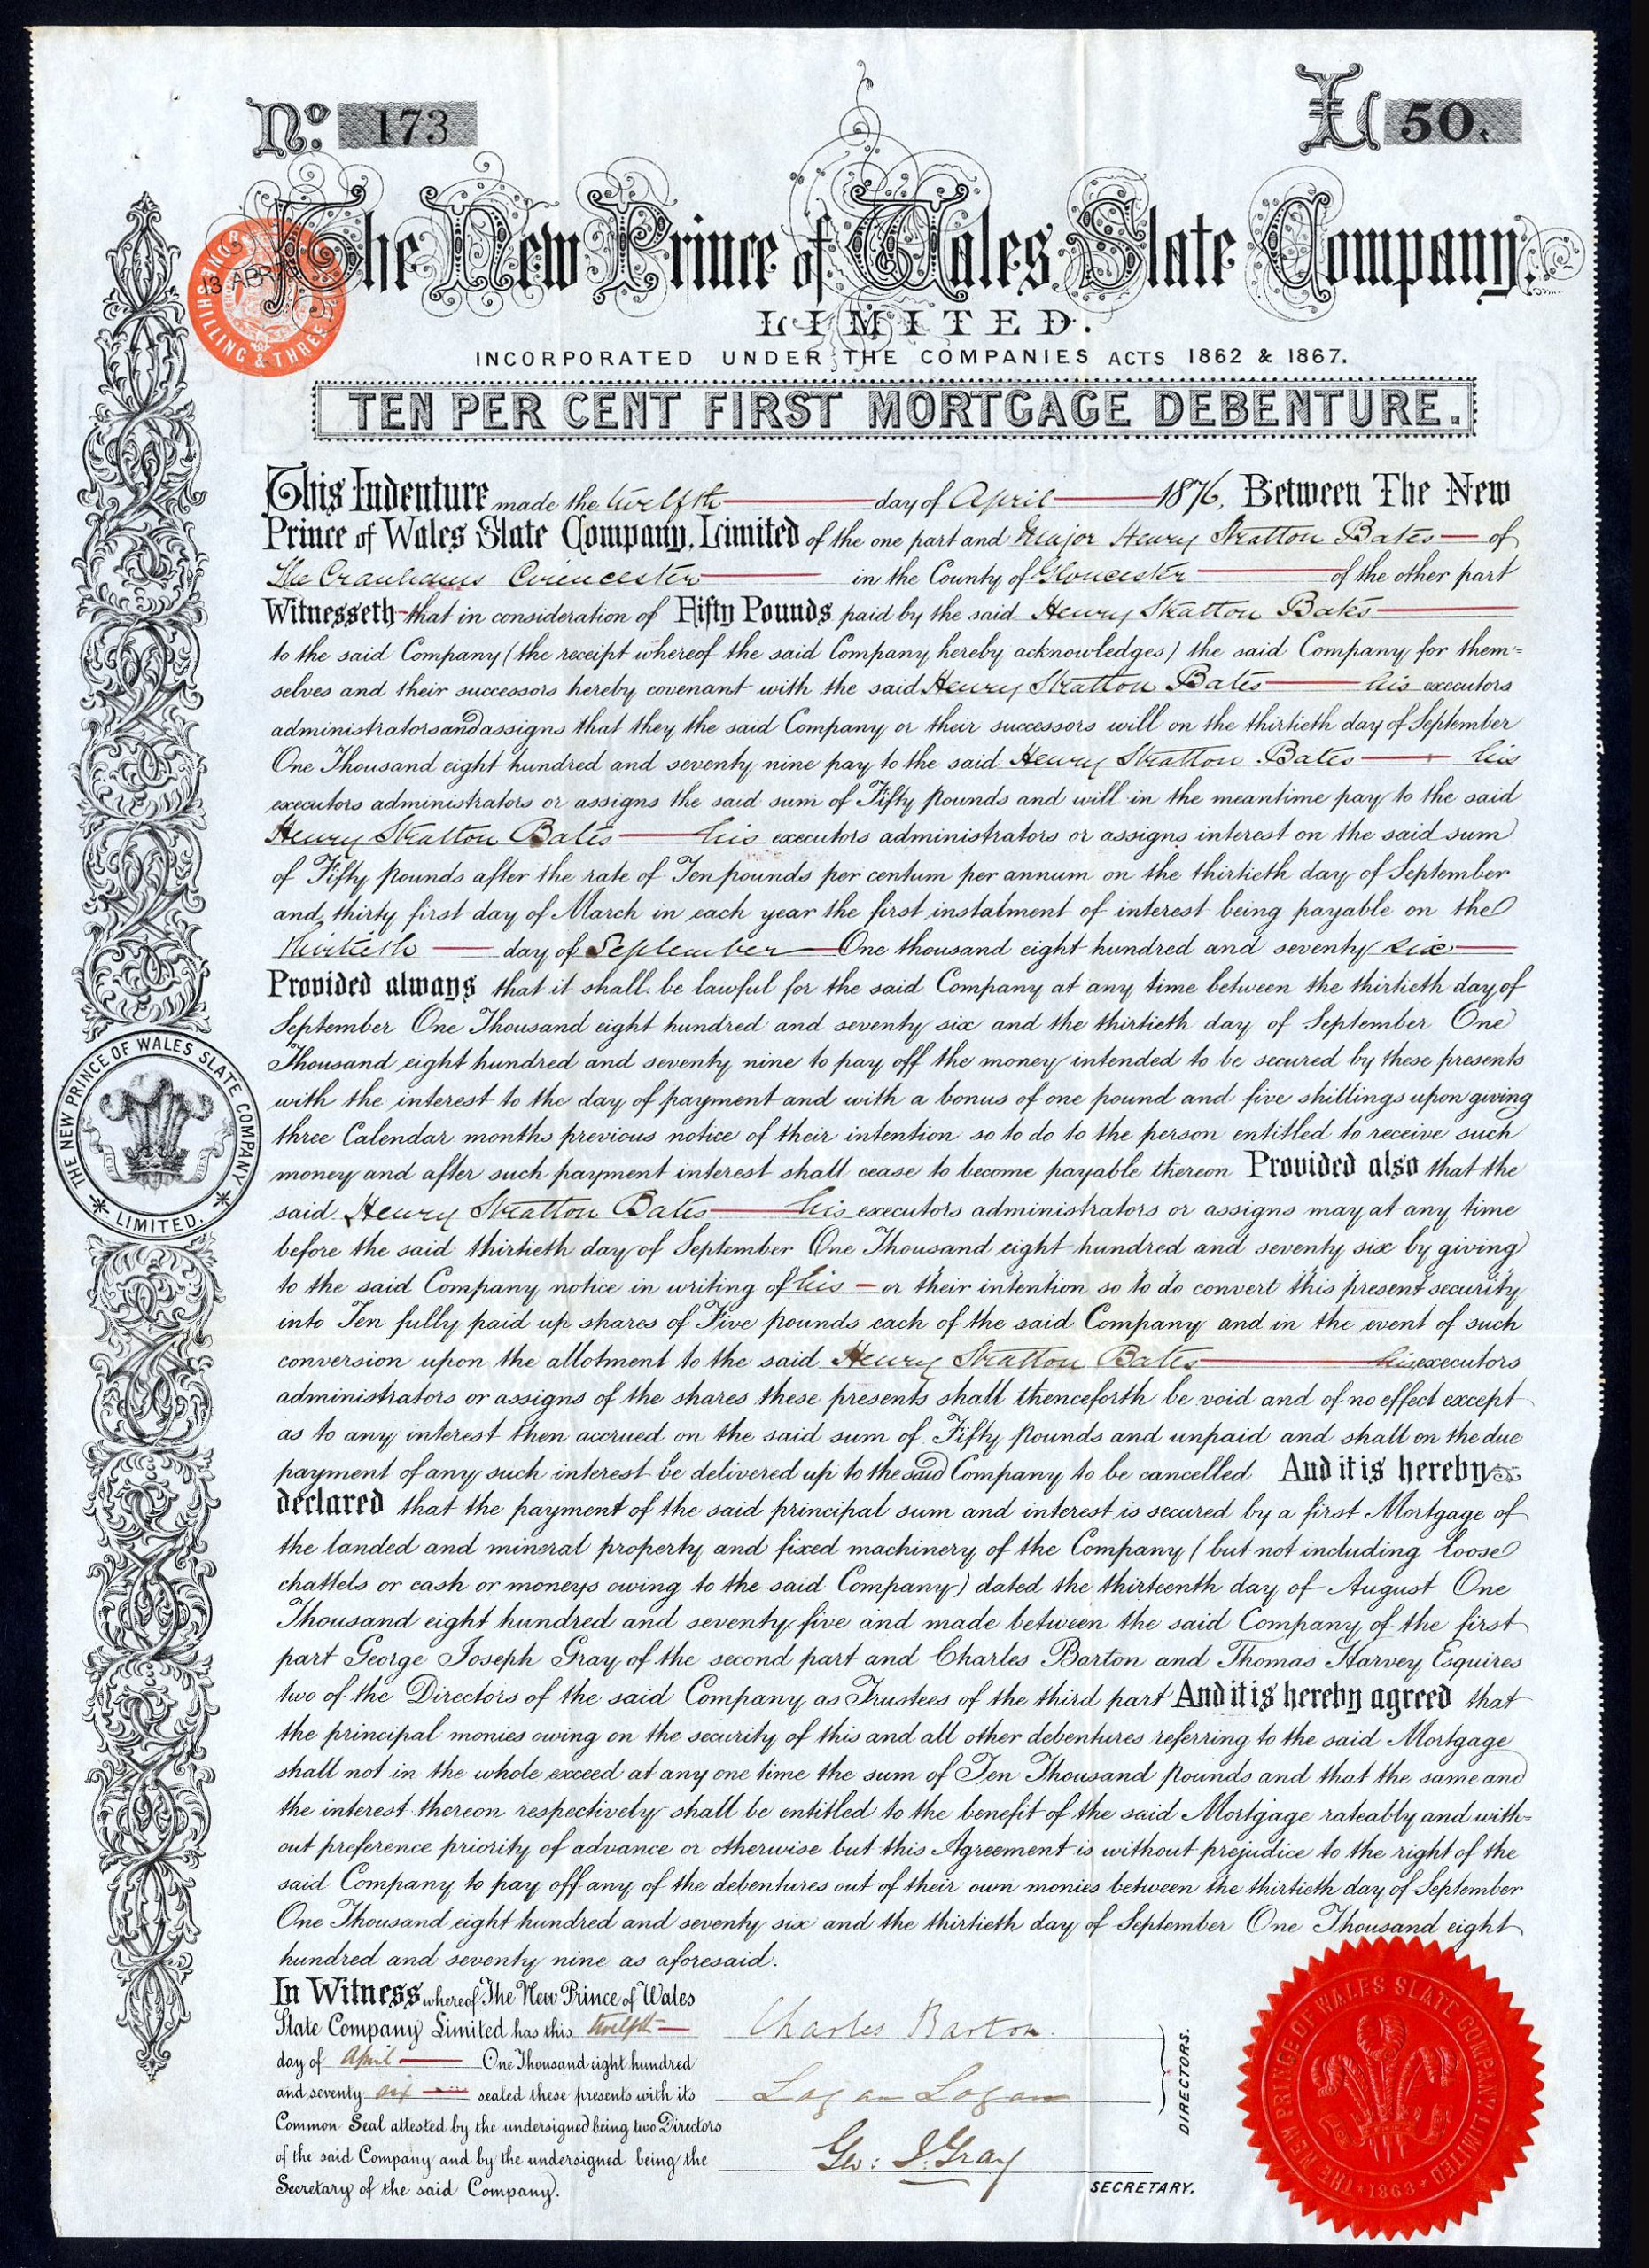 No. 173
£ 50.
The New Prince of Wales Slate Company,
LIMITED.
INCORPORATED UNDER THE COMPANIES ACTS 1862 & 1867.
TEN PER CENT FIRST MORTGAGE DEBENTURE.
13 AP
ONE SHILLING & THREE
This Indenture made the twelfth day of April 1876, Between The New
Prince of Wales Slate Company, Limited of the one part and Major Henry Stratton Bates of
The Cranhams Cirencester in the County of Gloucester of the other part
Witnesseth that in consideration of Fifty Pounds paid by the said Henry Stratton Bates
to the said Company (the receipt whereof the said Company hereby acknowledges) the said Company for them=
selves and their successors hereby covenant with the said Henry Stratton Bates his executors
administrators and assigns that they the said Company or their successors will on the thirtieth day of September
One Thousand eight hundred and seventy nine pay to the said Henry Stratton Bates his
executors administrators or assigns the said sum of Fifty pounds and will in the meantime pay to the said
Henry Stratton Bates his executors administrators or assigns interest on the said sum
of Fifty pounds after the rate of Ten pounds per centum per annum on the thirtieth day of September
and thirty first day of March in each year the first instalment of interest being payable on the
thirtieth day of September One thousand eight hundred and seventy six
Provided always that it shall be lawful for the said Company at any time between the thirtieth day of
September One Thousand eight hundred and seventy six and the thirtieth day of September One
Thousand eight hundred and seventy nine to pay off the money intended to be secured by these presents
with the interest to the day of payment and with a bonus of one pound and five shillings upon giving
three Calendar months previous notice of their intention so to do to the person entitled to receive such
money and after such payment interest shall cease to become payable thereon Provided also that the
said Henry Stratton Bates his executors administrators or assigns may at any time
before the said thirtieth day of September One Thousand eight hundred and seventy six by giving
to the said Company notice in writing of his or their intention so to do convert this present security
into Ten fully paid up shares of Five pounds each of the said Company and in the event of such
conversion upon the allotment to the said Henry Stratton Bates his executors
administrators or assigns of the shares these presents shall thenceforth be void and of no effect except
as to any interest then accrued on the said sum of Fifty pounds and unpaid and shall on the due
payment of any such interest be delivered up to the said Company to be cancelled And it is hereby
declared that the payment of the said principal sum and interest is secured by a first Mortgage of
the landed and mineral property and fixed machinery of the Company (but not including loose
chattels or cash or moneys owing to the said Company) dated the thirteenth day of August One
Thousand eight hundred and seventy five and made between the said Company of the first
part George Joseph Gray of the second part and Charles Barton and Thomas Harvey Esquires
two of the Directors of the said Company as Trustees of the third part And it is hereby agreed that
the principal monies owing on the security of this and all other debentures referring to the said Mortgage
shall not in the whole exceed at any one time the sum of Ten Thousand pounds and that the same and
the interest thereon respectively shall be entitled to the benefit of the said Mortgage rateably and with=
out preference priority of advance or otherwise but this Agreement is without prejudice to the right of the
said Company to pay off any of the debentures out of their own monies between the thirtieth day of September
One Thousand eight hundred and seventy six and the thirtieth day of September One Thousand eight
hundred and seventy nine as aforesaid.
THE NEW PRINCE OF WALES SLATE COMPANY
LIMITED.
In Witness whereof The New Prince of Wales
Slate Company Limited has this twelfth
day of April One Thousand eight hundred
and seventy six sealed these presents with its
Common Seal attested by the undersigned being two Directors
of the said Company and by the undersigned being the
Secretary of the said Company.
Charles Barton.
Logan Logan
DIRECTORS.
Geo: J. Gray
SECRETARY.
THE NEW PRINCE OF WALES SLATE COMPANY LIMITED
1868